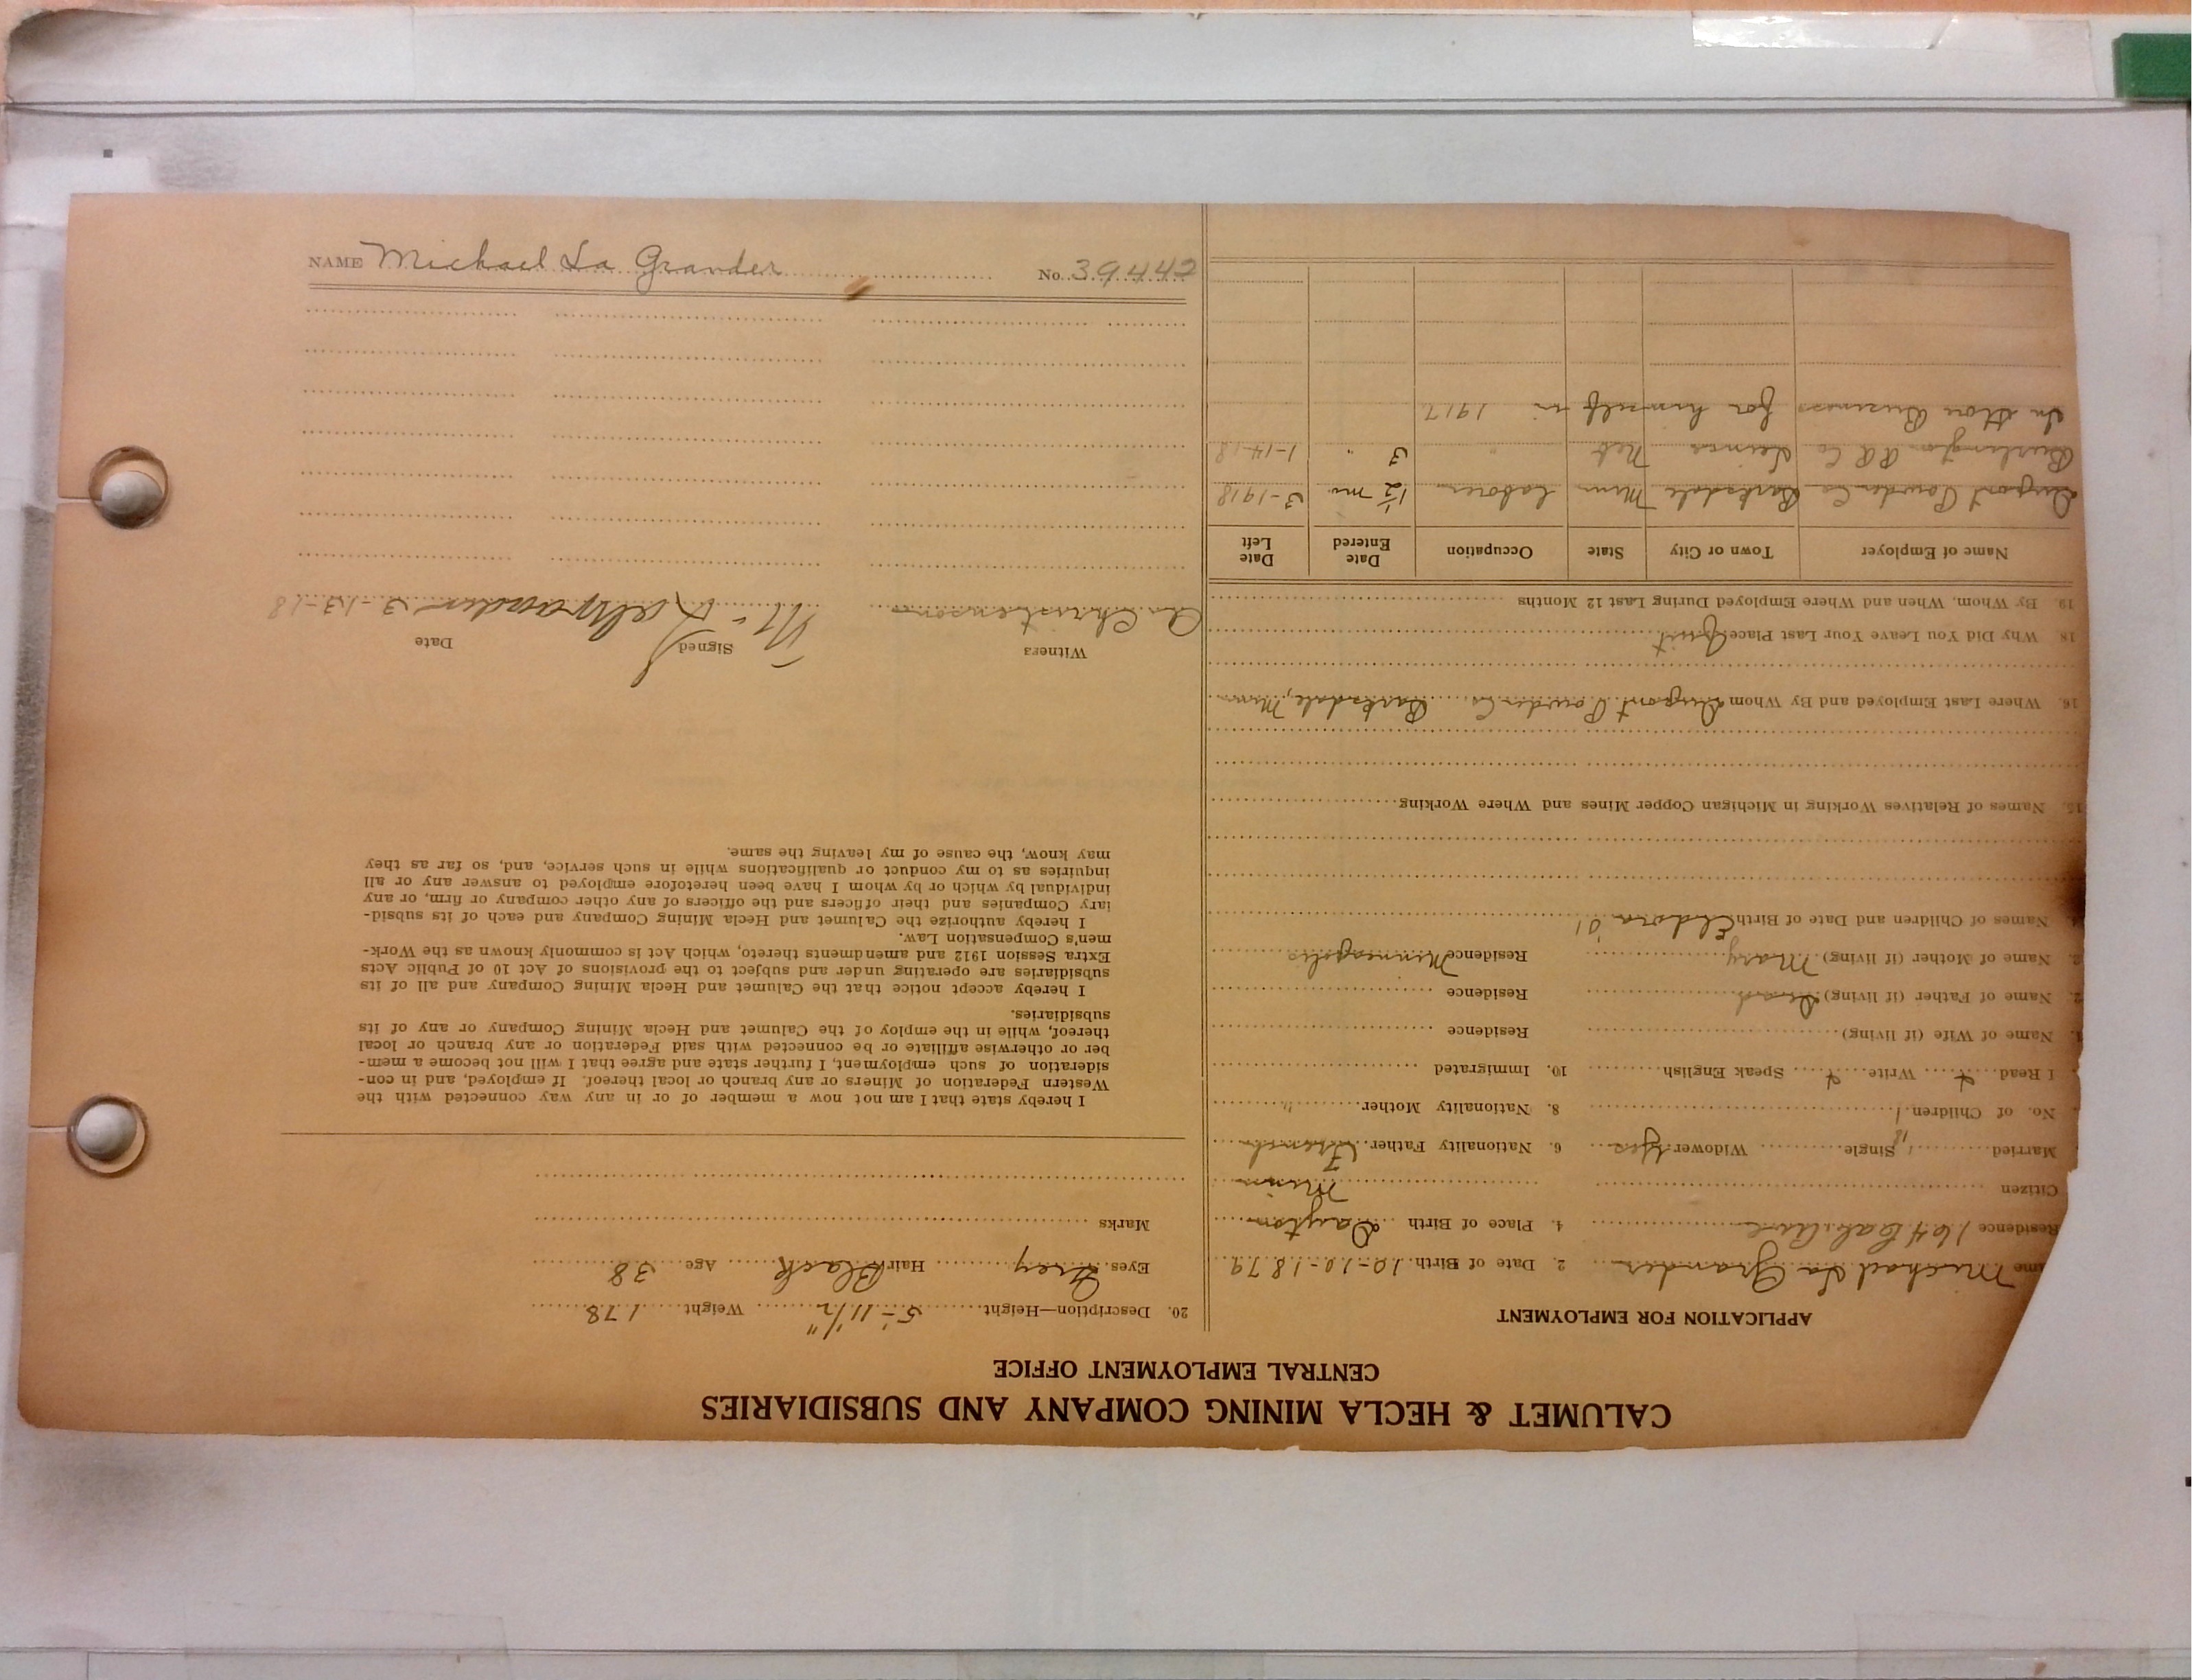 CALUMET & HECLA MINING COMPANY AND SUBSIDIARIES
CENTRAL EMPLOYMENT OFFICE
APPLICATION FOR EMPLOYMENT
ame Michael La Grander 2. Date of Birth 10-10-1879
Residence 164 Cal. Ave 4. Place of Birth Dayton
Citizen Minn
Married Single Widower Yes 6. Nationality Father French
No. of Children 1 8. Nationality Mother "
I Read Write Speak English 10. Immigrated
Name of Wife (if living) Residence
2. Name of Father (if living) Dead Residence
Name of Mother (if living) Mary Residence Minneapolis
Names of Children and Date of Birth Eldora '01
15. Names of Relatives Working in Michigan Copper Mines and Where Working
16. Where Last Employed and By Whom Dupont Powder Co. Barksdale, Minn
18. Why Did You Leave Your Last Place Quit
19. By Whom, When and Where Employed During Last 12 Months
Name of Employer Town or City State Occupation Date Entered Date Left
Dupont Powder Co Barksdale Minn laborer 1½ mo 3-1918
Burlington RR Co Neb " 3 " 1-14-18
In Business for himself in 1917
20. Description—Height 5-11½" Weight 178
Eyes Grey Hair Black Age 38
Marks
I hereby state that I am not now a member of or in any way connected with the
Western Federation of Miners or any branch or local thereof. If employed, and in con-
sideration of such employment, I further state and agree that I will not become a mem-
ber or otherwise affiliate or be connected with said Federation or any branch or local
thereof, while in the employ of the Calumet and Hecla Mining Company or any of its
subsidiaries.
I hereby accept notice that the Calumet and Hecla Mining Company and all of its
subsidiaries are operating under and subject to the provisions of Act 10 of Public Acts
Extra Session 1912 and amendments thereto, which Act is commonly known as the Work-
men's Compensation Law.
I hereby authorize the Calumet and Hecla Mining Company and each of its subsid-
iary Companies and their officers and the officers of any other company or firm, or any
individual by which or by whom I have been heretofore employed to answer any or all
inquiries as to my conduct or qualifications while in such service, and, so far as they
may know, the cause of my leaving the same.
Witness Signed Date
Christenson M. LaGrander 3-13-18
NAME Michael La Grander No. 39442